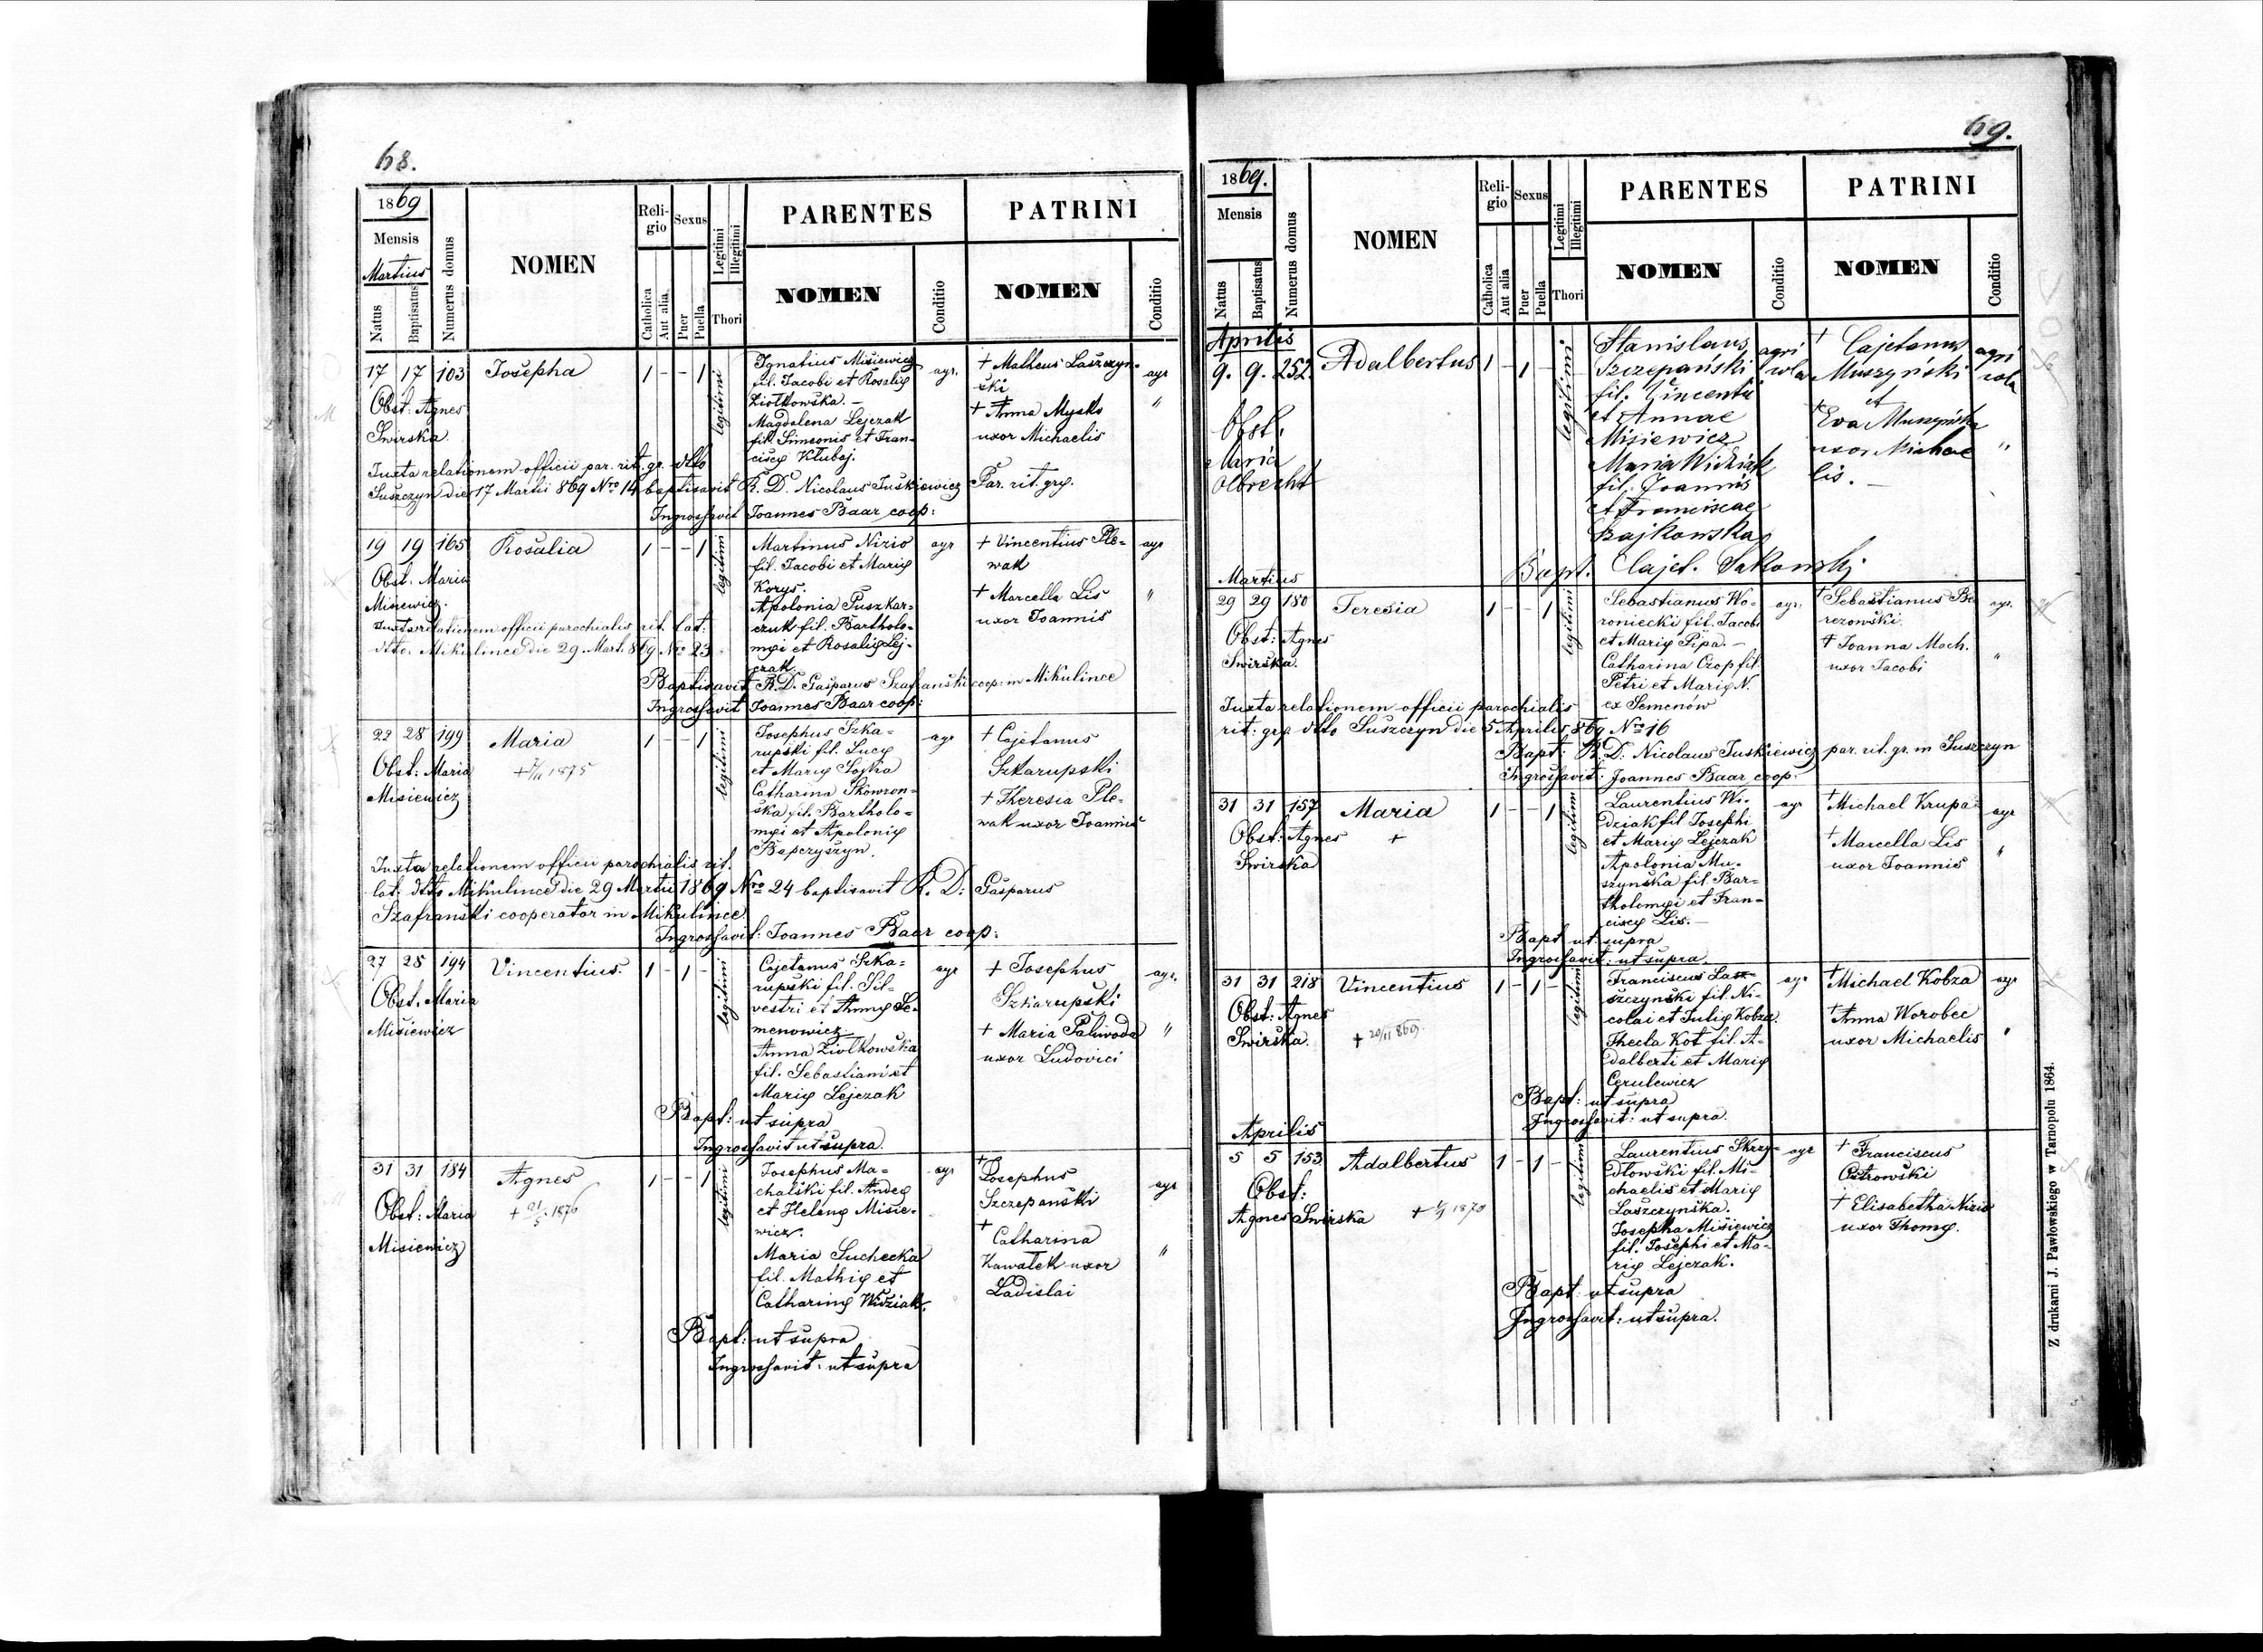 68.
1869
Mensis
Martius
Natus
Baptisatus
Numerus domus
NOMEN
Reli-
gio
Catholica
Aut alia
Sexus
Puer
Puella
Legitimi
Illegitimi
Thori
PARENTES
NOMEN
Conditio
PATRINI
NOMEN
Conditio
17 17 103 Josepha 1 - - 1 legitimi
Obst: Agnes
Swirska.
Ignatius Misiewicz
fil. Jacobi et Rosalię
Ziołkowska. -
Magdalena Lejczak
fil. Simeonis et Fran-
ciscę Kłubaj.
agr.
+ Matheus Laszczyn-
ski
+ Anna Mysko
uxor Michaelis
agr
"
Juxta relationem officii par. rit. gr. dtto
Suszczyn die 17 Martii 869 Nro 14 baptisavit R. D. Nicolaus Juskiewicz Par. rit. grę.
Ingrossavit Joannes Baar coop:
19 19 165 Rosalia 1 - - 1 legitimi
Obst. Maria
Misiewicz.
Martinus Nizio
fil. Jacobi et Marię
Korys.
Apolonia Puszkar-
czuk fil. Bartholo-
męi et Rosalię Lej-
czak.
agr
+ Vincentius Ple-
wak
+ Marcella Lis
uxor Joannis
agr
"
Juxta relationem officii parochialis rit. lat:
dtto. Mikulince die 29 Mart. 869 Nro 23
Baptisavit R. D. Gasparus Szafranski coop: in Mikulince
Ingrossavit Joannes Baar coop:
22 28 199 Maria 1 - - 1 legitimi
Obst: Maria
Misiewicz
1875
Josephus Szka-
rupski fil. Lucę
et Marię Sojka
Catharina Skowron-
ska fil. Bartholo-
męi et Apolonię
Bapczyszyn.
agr
+ Cajetanus
Szkarupski
+ Theresia Ple-
wak uxor Joannis
Juxta relationem officii parochialis rit.
lat. dtto Mikulince die 29 Martii 1869 Nro 24 baptisavit R. D: Gasparus
Szafranski cooperator in Mikulince
Ingrossavit: Joannes Baar coop:
27 28 194 Vincentius. 1 - 1 - legitimi
Obst. Maria
Misiewicz
Cajetanus Szka-
rupski fil. Sil-
vestri et Annę Se-
menowicz.
Anna Ziolkowska
fil. Sebastiani et
Marię Lejczak
agr
+ Josephus
Szkarupski
+ Maria Paliwoda
uxor Ludovici
agr.
"
Bapt: ut supra
Ingrossavit ut supra.
31 31 184 Agnes 1 - - 1 legitimi
Obst: Maria
Misiewicz
+ 21/5 1876
Josephus Ma-
chalski fil. Andeę
et Helenę Misie-
wicz.
Maria Suchecka
fil. Mathię et
Catharinę Widziak.
agr
+ Josephus
Szczepanski
+
Catharina
Kawałek uxor
Ladislai
agr
"
Bapt: ut supra
Ingrossavit: ut supra
69.
1869.
Mensis
Natus
Baptisatus
Numerus domus
NOMEN
Reli-
gio
Catholica
Aut alia
Sexus
Puer
Puella
Legitimi
Illegitimi
Thori
PARENTES
NOMEN
Conditio
PATRINI
NOMEN
Conditio
Aprilis
9. 9. 252. Adalbertus 1 - 1 - legitimi
Obst.
Maria
Olbrecht
Stanislaus
Szczepański
fil. Vincentii
et Annae
Misiewicz
Maria Widziak
fil. Joannis
et Franciscae
Bajkowska
agri
cola
+ Cajetanus
Muszyński
et
+ Eva Muszyńska
uxor Michae
lis. -
agri
cola
"
Bapt. Cajet. Sakowski
Martius
29 29 180 Teresia 1 - - 1 legitimi
Obst: Agnes
Swirska.
Sebastianus Wo-
roniecki fil. Jacobi
et Marię Pipa. -
Catharina Czop fil.
Petri et Marię N.
ex Semenów
agr.
+ Sebastianus Be
rezowski.
+ Joanna Mach.
uxor Jacobi
agr.
"
Juxta relationem officii parochialis
rit: grę dtto Suszczyn die 5 Aprilis 869 Nro 16
Bapt: R. D: Nicolaus Juskiewicz par. rit. gr. in Suszczyn
Ingrossavit: Joannes Baar coop:
31 31 157 Maria 1 - - 1 legitimi
Obst: Agnes
Swirska
+
Laurentius Wi-
dziak fil Josephi
et Marię Lejczak
Apolonia Mu-
szynska fil. Bar-
tholomęi et Fran-
ciscę Lis. -
agr
+ Michael Krupa
+ Marcella Lis
uxor Joannis
agr
"
Bapt ut: supra
Ingrossavit: ut supra.
31 31 218 Vincentius 1 - 1 - legitimi
Obst: Agnes
Swirska.
+ 20/11 869.
Franciscus La-
szczynski fil. Ni-
colai et Julię Kobza.
Thecla Kot fil. A-
dalberti et Marię
Cerulewicz
agr
+ Michael Kobza
+ Anna Worobec
uxor Michaelis
agr
"
Bapt: ut supra
Ingrossavit: ut supra.
Aprilis
5 5 153 Adalbertus 1 - 1 - legitimi
Obst:
Agnes Swirska
1870
Laurentius Skrzy-
dłowski fil. Mi-
chaelis et Marię
Laszczynska.
Josepha Misiewicz
fil. Josephi et Ma-
rię Lejczak.
agr
+ Franciscus
Ostrowski
+ Elisabetha Nizio
uxor Thomę.
Bapt: ut supra
Ingrossavit: ut supra.
Z drukarni J. Pawłowskiego w Tarnopolu 1864.